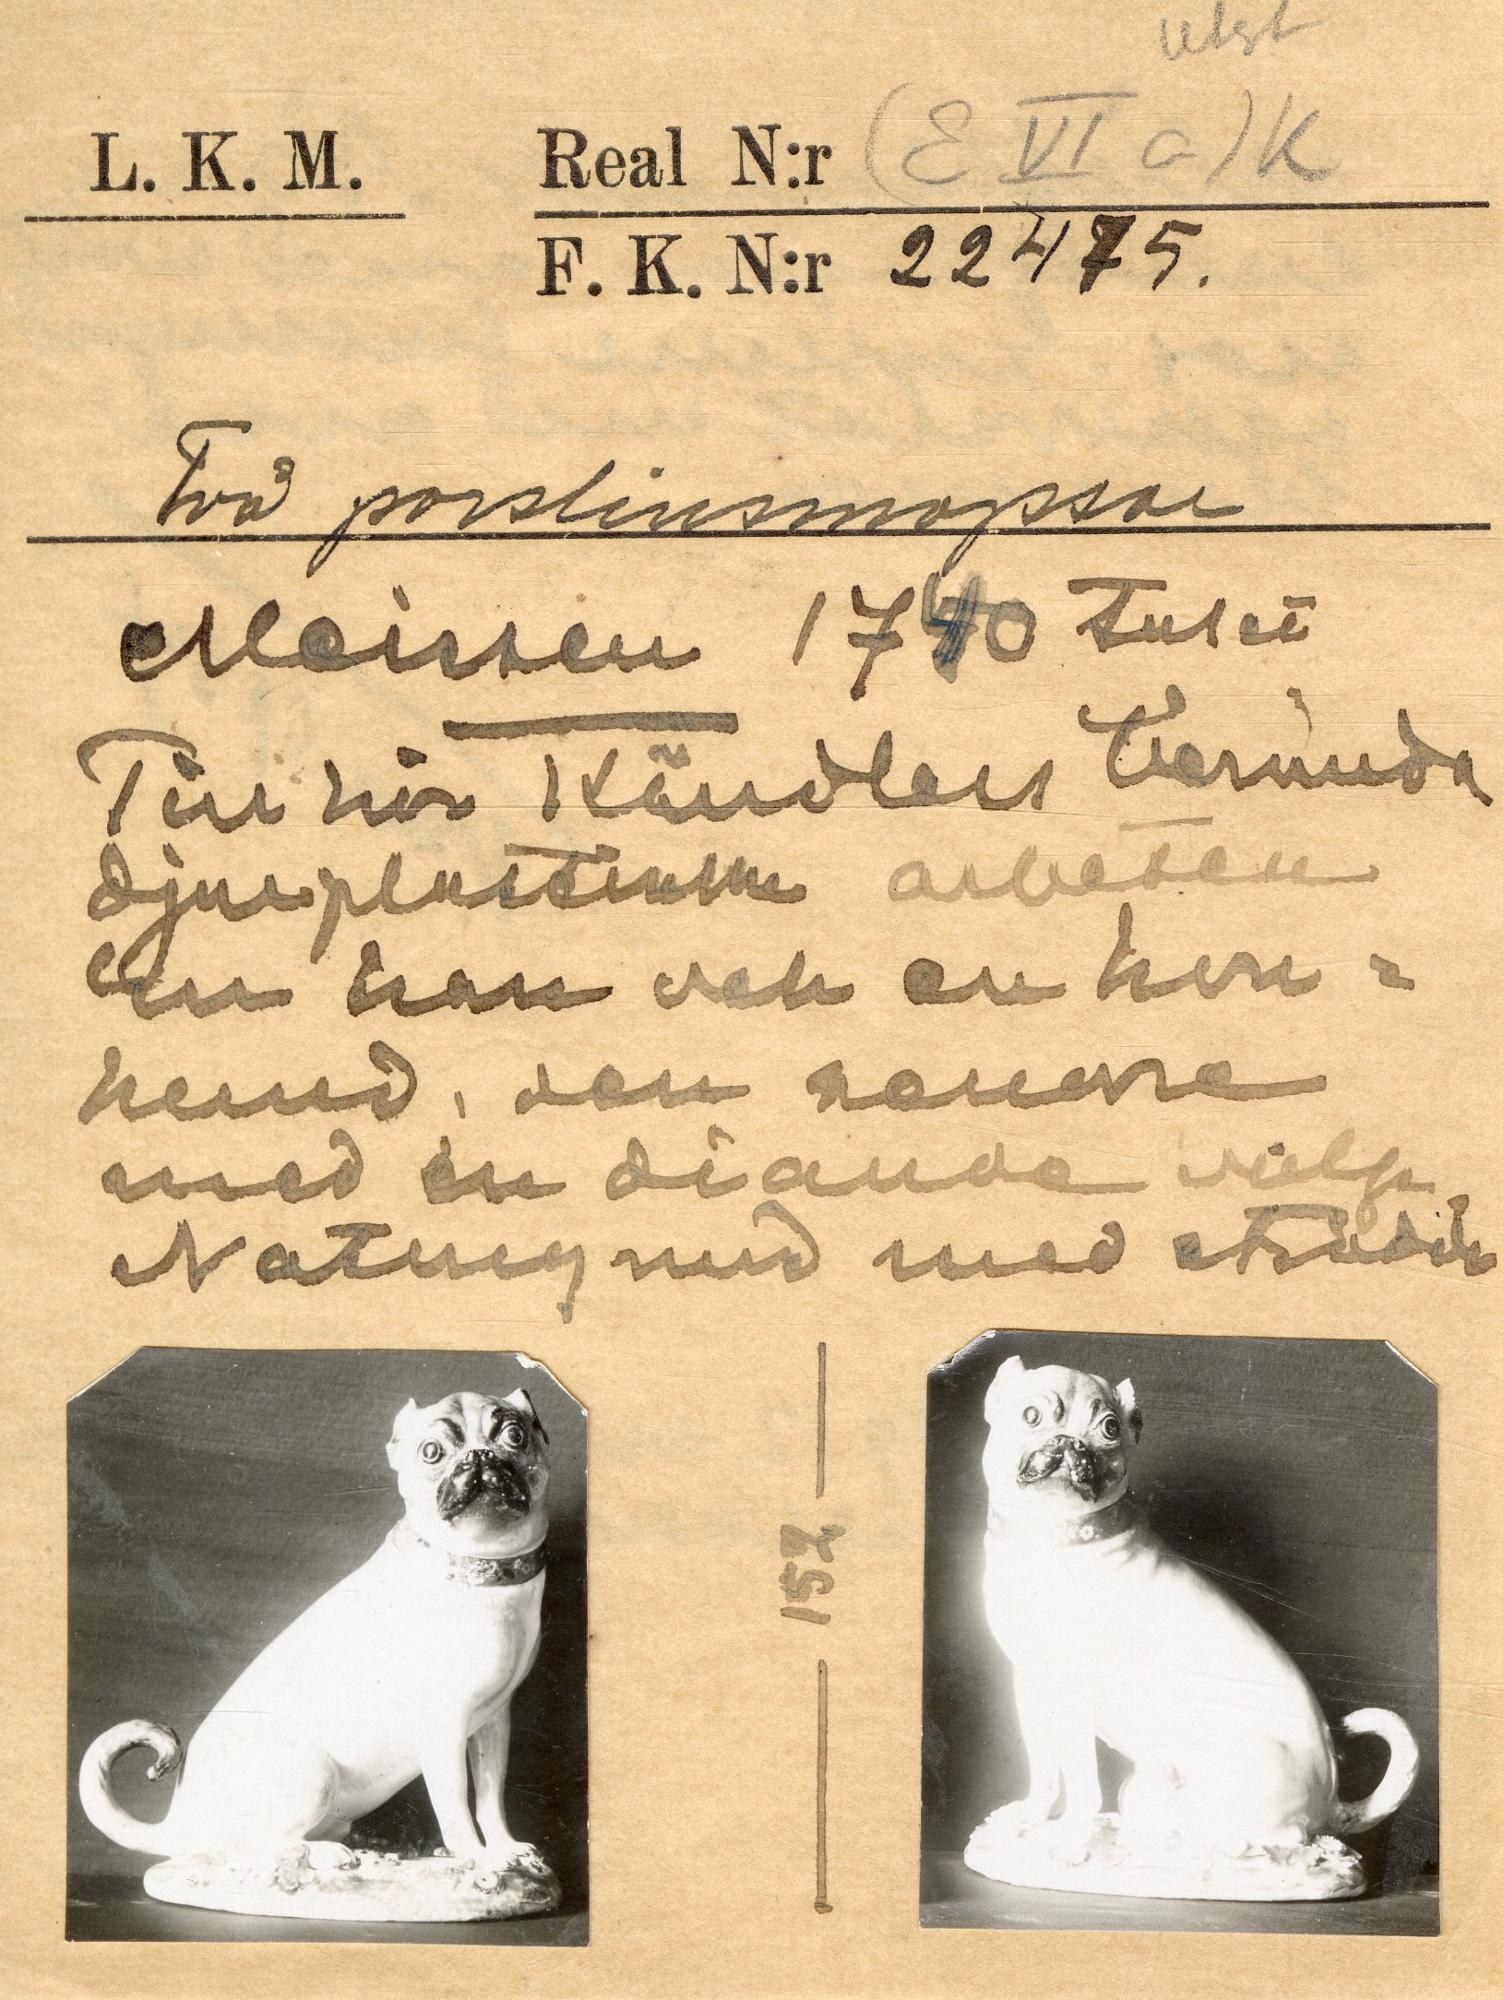 utst
L. K. M. Real N:r (E VI a) K
F. K. N:r 22475.
Två porslinsmopsar
Meissen 1740 talet
Tillhör Kändlers berömda
djurplastiska arbeten
En han och en hon =
hund, den senare
med en diande valp
Naturgrund med
152